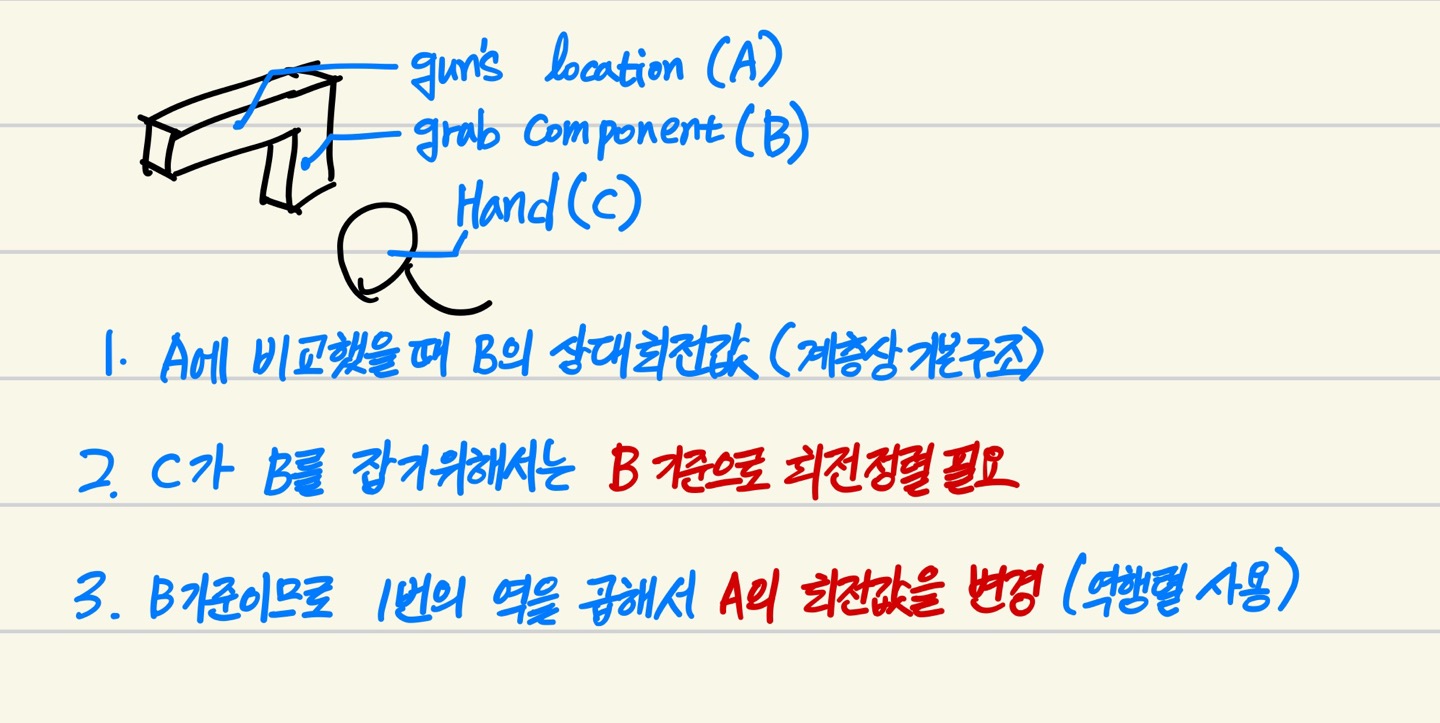 gun's location (A)
grab component (B)
Hand (C)
1. A에 비교했을 때 B의 상대회전값 (계층상 기본구조)
2. C가 B를 잡기위해서는 B 기준으로 회전정렬 필요
3. B기준이므로 1번의 역을 곱해서 A의 회전값을 변경 (역행렬 사용)